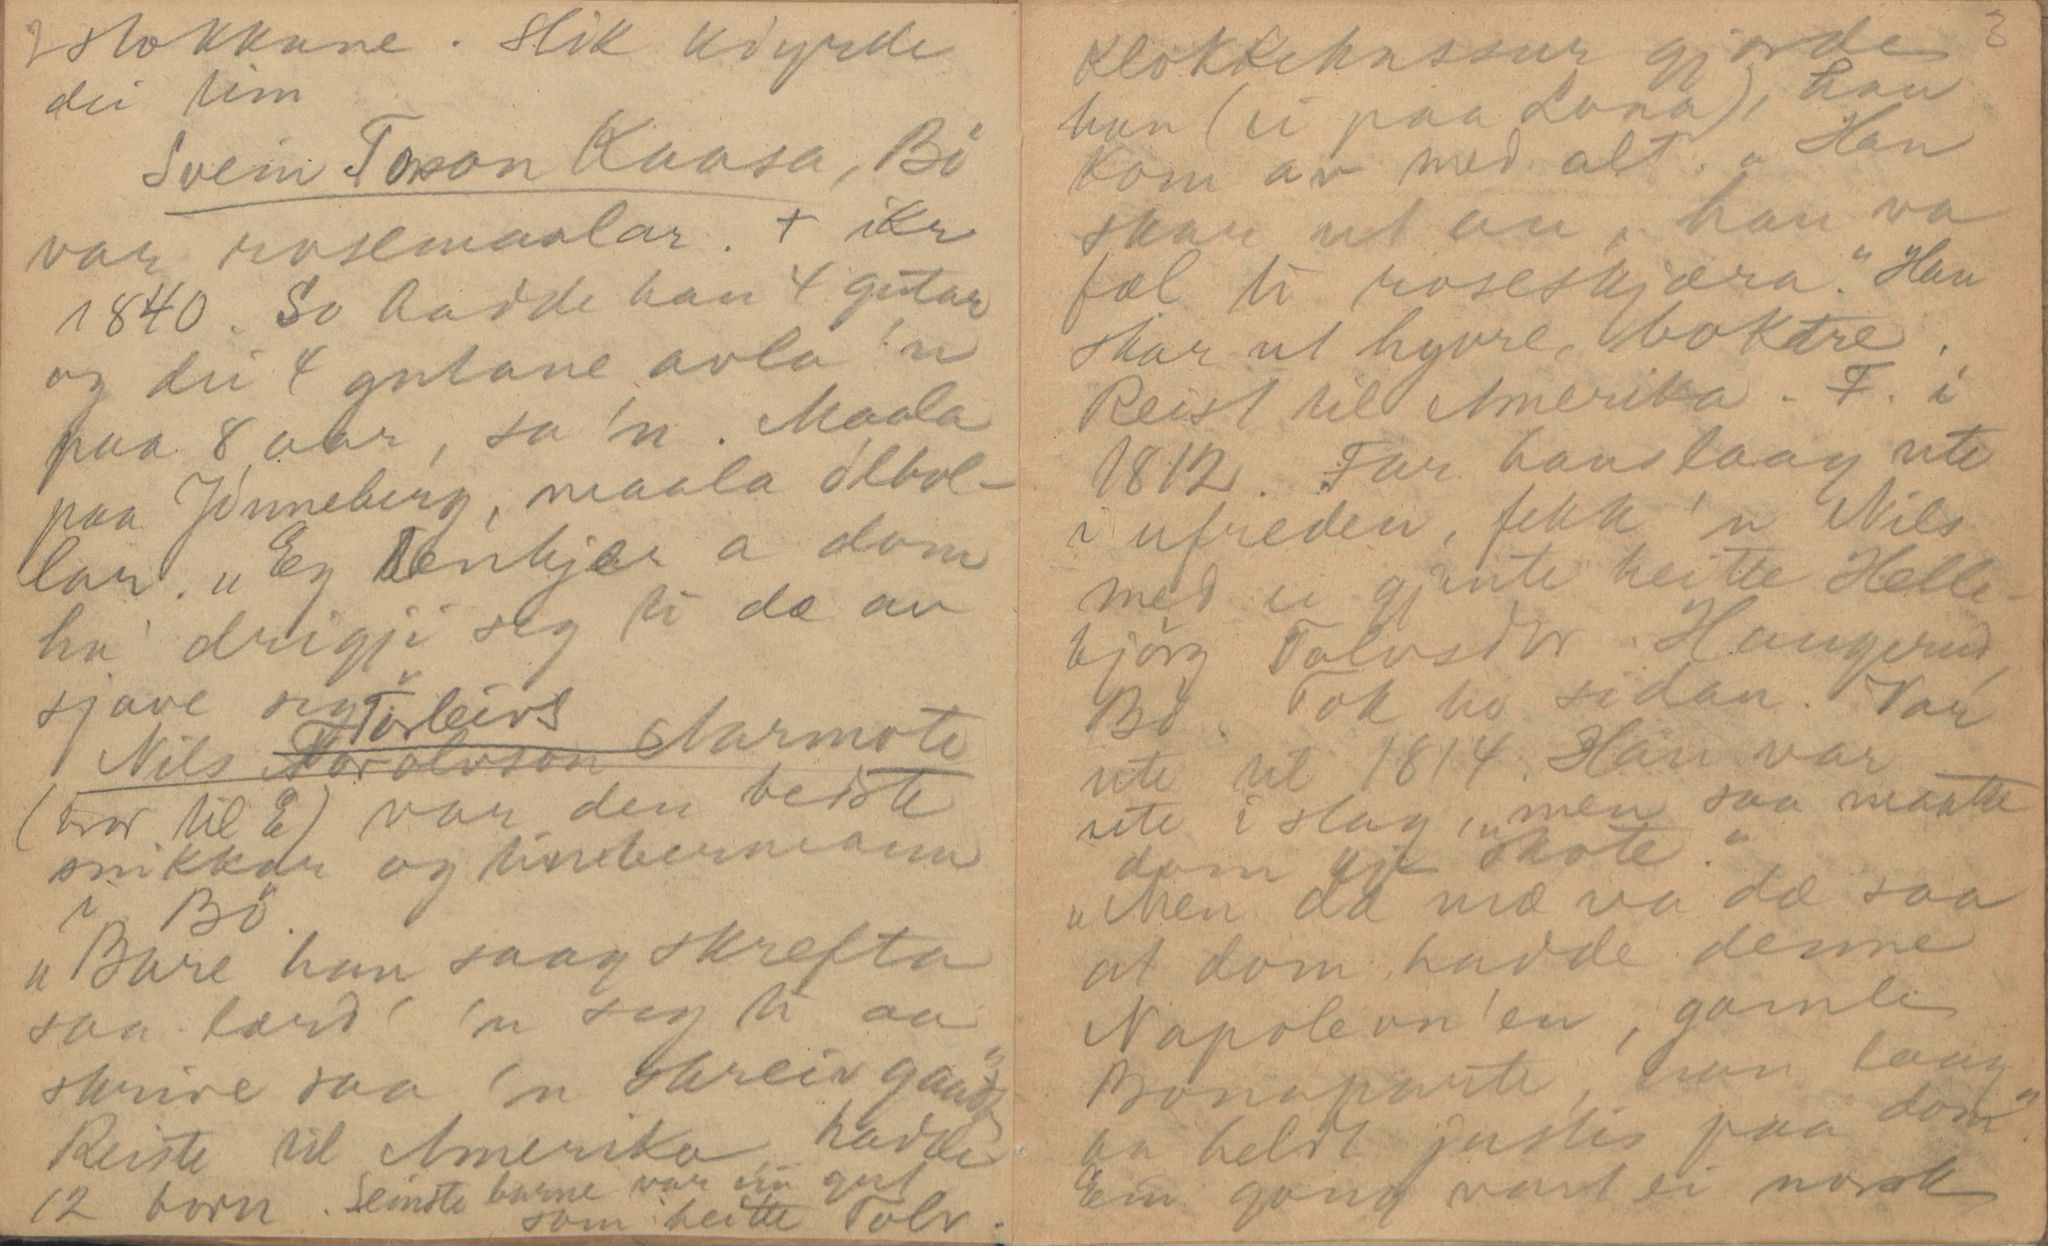 2
stokkane. Slik köyrde
dei tim
Svein Toson Kaasa, Bö
var rosemaalar. + ikr
1840. So hadde han 4 gutar
og dei 4 gutane avla 'n
paa 8 aar, sa 'n. Maala
paa Jönneberg, maala ölbol-
lar. „Eg tenkjer a dom
ha' drigji seg ti dæ av
sjave seg"
Nils Torleivs Aarmote
(bror til E) var den beiste
snikkar og timbermann
i Bö.
„Bare han saag skrefta
saa lærd' 'n seg ti aa
skrive saa 'n skreiv gaadt"
Reiste til Amerika hadde
12 born. Seinste barne var ein gut
som heitte Tolv.
3
Klokkekassur gjorde
han (ei paa Lona), han
kom av med alt. „Han
skar ut au, han va
fæl ti roseskjæra." Han
skar ut hyvre, boktre.
Reist til Amerika. F. i
1812. Far hans laag ute
i ufreden, fekk 'n Nils
med ei gjente heitte Helle-
björg Tolvsdtr Haugerud,
Bö. Tok ho sidan. Var
ute til 1814. Han var
ute i slag, „men saa maatte
dom kji skote."
„Men dæ væ va dæ saa
at dom hadde denne
Napoleon'en, gamle
Bonaparte, han laag
aa heldt justis paa dom".
Ein gong vart ei norsk